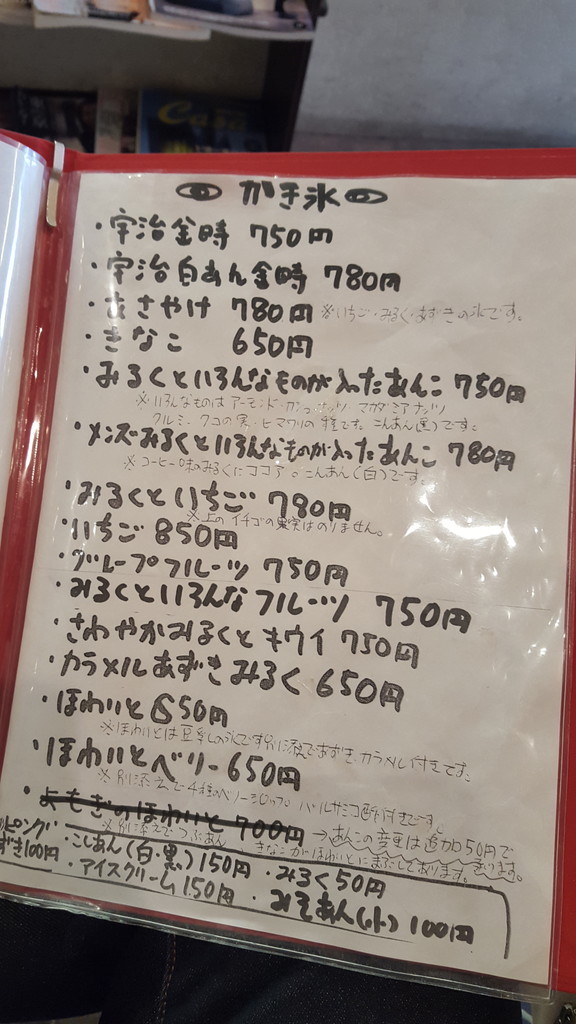 Casa
かき氷
・宇治金時 750円
・宇治白あん金時 780円
・あさやけ 780円 ※いちご・みるく・あずきの氷です。
・きなこ 650円
・みるくといろんなものが入ったあんこ 750円
※いろんなものは アーモンド・カシューナッツ マカダミアナッツ
クルミ、クコの実・ヒマワリの種です。こしあん(黒)です。
・メンズみるくといろんなものが入ったあんこ 780円
※コーヒー味のみるくにココア。こしあん(白)です。
・みるくといちご 780円
※上のイチゴの果実はのりません。
・いちご 850円
・グレープフルーツ 750円
・みるくといろんなフルーツ 750円
・さわやかみるくとキウイ 750円
・カラメルあずきみるく 650円
・ほわいと 650円
※ほわいとは豆乳の氷です別に添えであずき、カラメル付きです。
・ほわいとベリー 650円
※別に添えで4種のベリーシロップ バルサミコ酢付きです。
・よもぎのほわいと 700円 →あんこの変更は追加50円で
※別に添えでつぶあん きなこがほわいとにまぶしてあります。 承ります。
ッピング ・こしあん(白・黒)150円 ・みるく50円
ずき100円 ・アイスクリーム150円 ・みそあん(小)100円